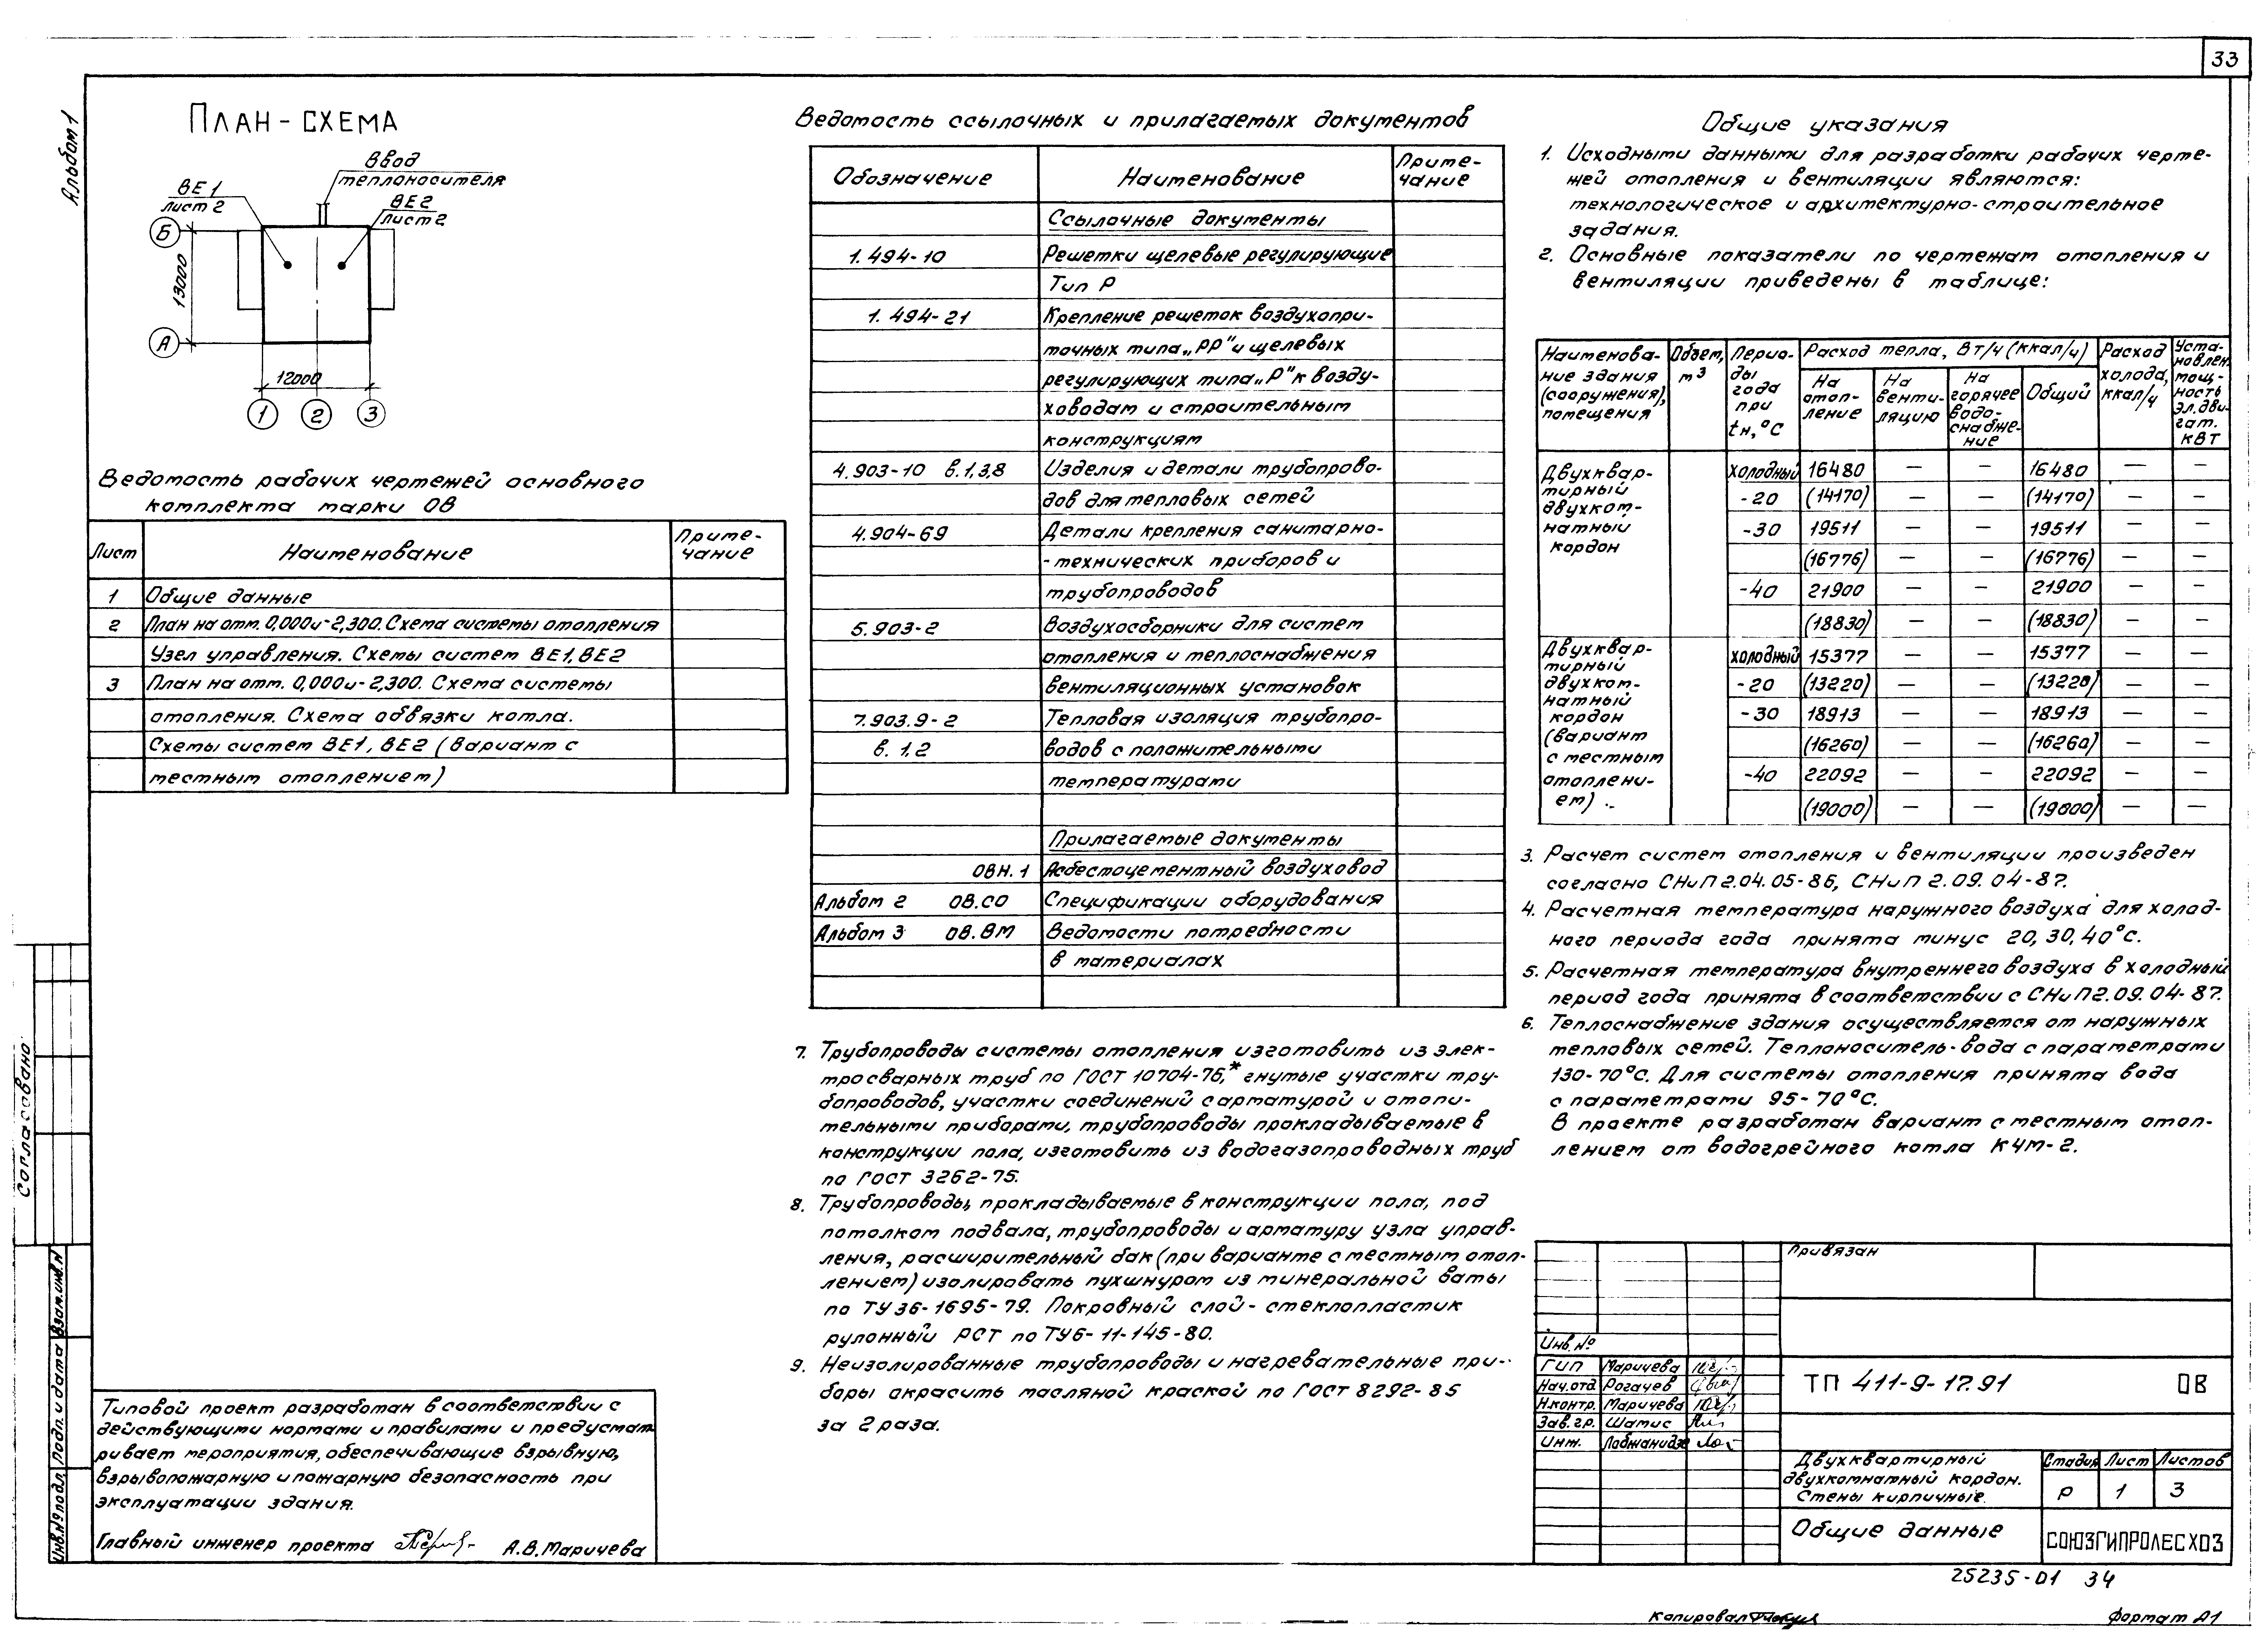 33
Альбом 1
План-схема
Ввод
теплоносителя
ВЕ1
лист 2
ВЕ2
лист 2
Б
13000
А
12000
1 2 3
Ведомость рабочих чертежей основного
комплекта марки ОВ
Лист Наименование Приме-
чание
1 Общие данные
2 План на отм. 0,000 и -2,300. Схема системы отопления
Узел управления. Схемы систем ВЕ1, ВЕ2
3 План на отм. 0,000 и -2,300. Схема системы
отопления. Схема обвязки котла.
Схемы систем ВЕ1, ВЕ2 (вариант с
местным отоплением)
Ведомость ссылочных и прилагаемых документов
Обозначение Наименование Приме-
чание
Ссылочные документы
1.494-10 Решетки щелевые регулирующие
Тип Р
1.494-21 Крепление решеток воздухопри-
точных типа „РР" и щелевых
регулирующих типа „Р" к возду-
ховодам и строительным
конструкциям
4.903-10 в.1,3,8 Изделия и детали трубопрово-
дов для тепловых сетей
4.904-69 Детали крепления санитарно-
-технических приборов и
трубопроводов
5.903-2 Воздухосборники для систем
отопления и теплоснабжения
вентиляционных установок
7.903.9-2 Тепловая изоляция трубопро-
в. 1.2 водов с положительными
температурами
Прилагаемые документы
ОВН.1 Асбестоцементный воздуховод
Альбом 2 ОВ.СО Спецификации оборудования
Альбом 3 ОВ.ВМ Ведомости потребности
в материалах
7. Трубопроводы системы отопления изготовить из элек-
тросварных труб по ГОСТ 10704-76,* гнутые участки тру-
бопроводов, участки соединений с арматурой и отопи-
тельными приборами, трубопроводы прокладываемые в
конструкции пола, изготовить из водогазопроводных труб
по ГОСТ 3262-75.
8. Трубопроводы, прокладываемые в конструкции пола, под
потолком подвала, трубопроводы и арматуру узла управ-
ления, расширительный бак (при варианте с местным отоп-
лением) изолировать пухшнуром из минеральной ваты
по ТУ 36-1695-79. Покровный слой - стеклопластик
рулонный РСТ по ТУ6-11-145-80.
9. Неизолированные трубопроводы и нагревательные при-
боры окрасить масляной краской по ГОСТ 8292-85
за 2 раза.
Общие указания
1. Исходными данными для разработки рабочих черте-
жей отопления и вентиляции являются:
технологическое и архитектурно-строительное
задания.
2. Основные показатели по чертежам отопления и
вентиляции приведены в таблице:
Наименова-
ние здания
(сооружения),
помещения
Объем,
м³
Перио-
ды
года
при
tн,°С
Расход тепла, Вт/ч (ккал/ч)
На
отоп-
ление
На
венти-
ляцию
На
горячее
водо-
снабже-
ние
Общий
Расход
холода,
ккал/ч
Уста-
новлен.
мощ-
ность
эл.дви-
гат.
кВт
Двухквар-
тирный
двухком-
натный
кордон
холодный 16480 — — 16480 — —
-20 (14170) — — (14170) — —
-30 19511 — — 19511 — —
(16776) — — (16776) — —
-40 21900 — — 21900 — —
(18830) — — (18830) — —
Двухквар-
тирный
двухком-
натный
кордон
(вариант
с местным
отоплени-
ем)
холодный 15377 — — 15377 — —
-20 (13220) — — (13220) — —
-30 18913 — — 18913 — —
(16260) — — (16260) — —
-40 22092 — — 22092 — —
(19000) — — (19000) — —
3. Расчет систем отопления и вентиляции произведен
согласно СНиП 2.04.05-86, СНиП 2.09.04-87.
4. Расчетная температура наружного воздуха для холод-
ного периода года принята минус 20, 30, 40°С.
5. Расчетная температура внутреннего воздуха в холодный
период года принята в соответствии с СНиП 2.09.04-87.
6. Теплоснабжение здания осуществляется от наружных
тепловых сетей. Теплоноситель - вода с параметрами
130-70°С. Для системы отопления принята вода
с параметрами 95-70°С.
В проекте разработан вариант с местным отоп-
лением от водогрейного котла КЧМ-2.
Согласовано:
Взам.инв.№
Подп. и дата
Инв.№ подл.
Типовой проект разработан в соответствии с
действующими нормами и правилами и предусмат
ривает мероприятия, обеспечивающие взрывную,
взрывопожарную и пожарную безопасность при
эксплуатации здания.
Главный инженер проекта А.В.Маричева
Привязан
Инв.№
ГИП Маричева
Нач.отд Рогачев
Н.контр. Маричева
Зав.гр. Шатис
Инж. Лобжанидзе
ТП 411-9-17.91 ОВ
Двухквартирный
двухкомнатный кордон.
Стены кирпичные.
Стадия Лист Листов
Р 1 3
Общие данные
СОЮЗГИПРОЛЕСХОЗ
25235-01 34
Копировал
Формат А1